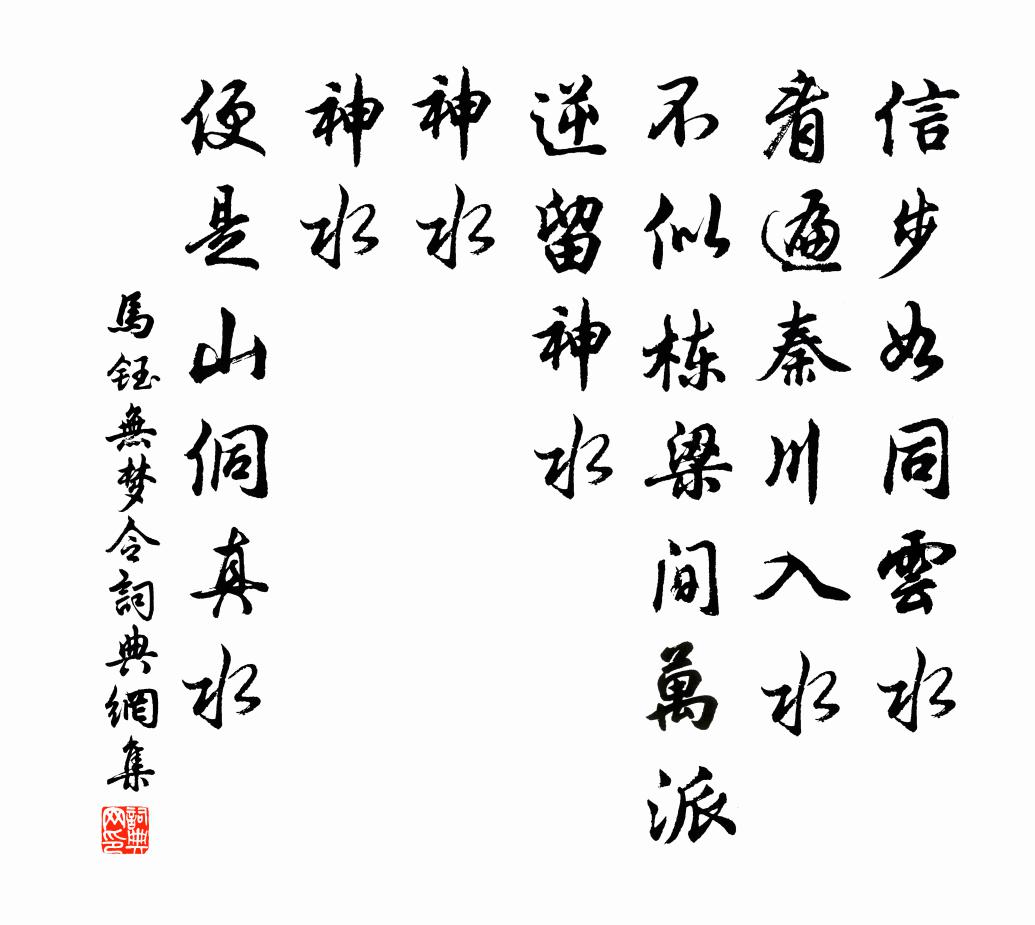 信步如同雲水
看遍秦川入水
不似栋梁间萬派
逆留神水
神水
神水
便是山侗真水
馬鈺無梦令詞典網集
詞典网印